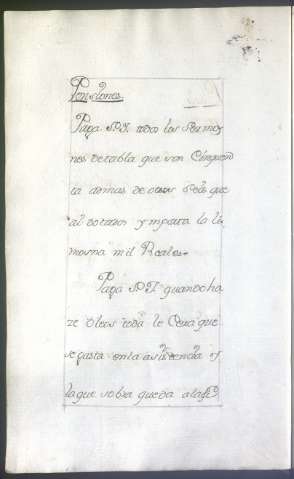 Pensiones.
Paga S.I. todos los Sermo
nes de tabla que son Cinquen
ta demas de otros que
al y importa la li
mosna mil Reales.
Paga S.I. quando ha
ze Oleos toda la Cera que
se gasta en la asistencia y
la que sobra queda a la